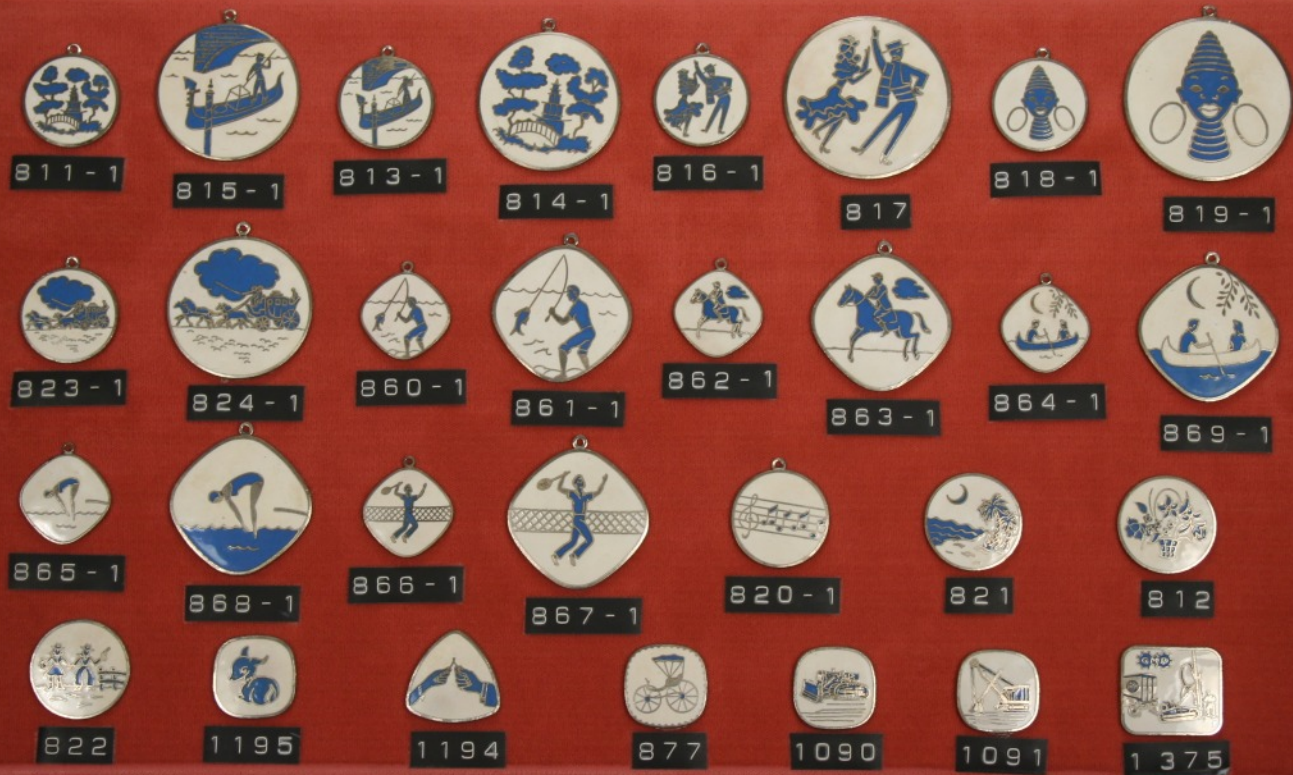 811-1
815-1
813-1
814-1
816-1
817
818-1
819-1
823-1
824-1
860-1
861-1
862-1
863-1
864-1
869-1
865-1
868-1
866-1
867-1
820-1
821
812
822
1195
1194
877
1090
1091
1375